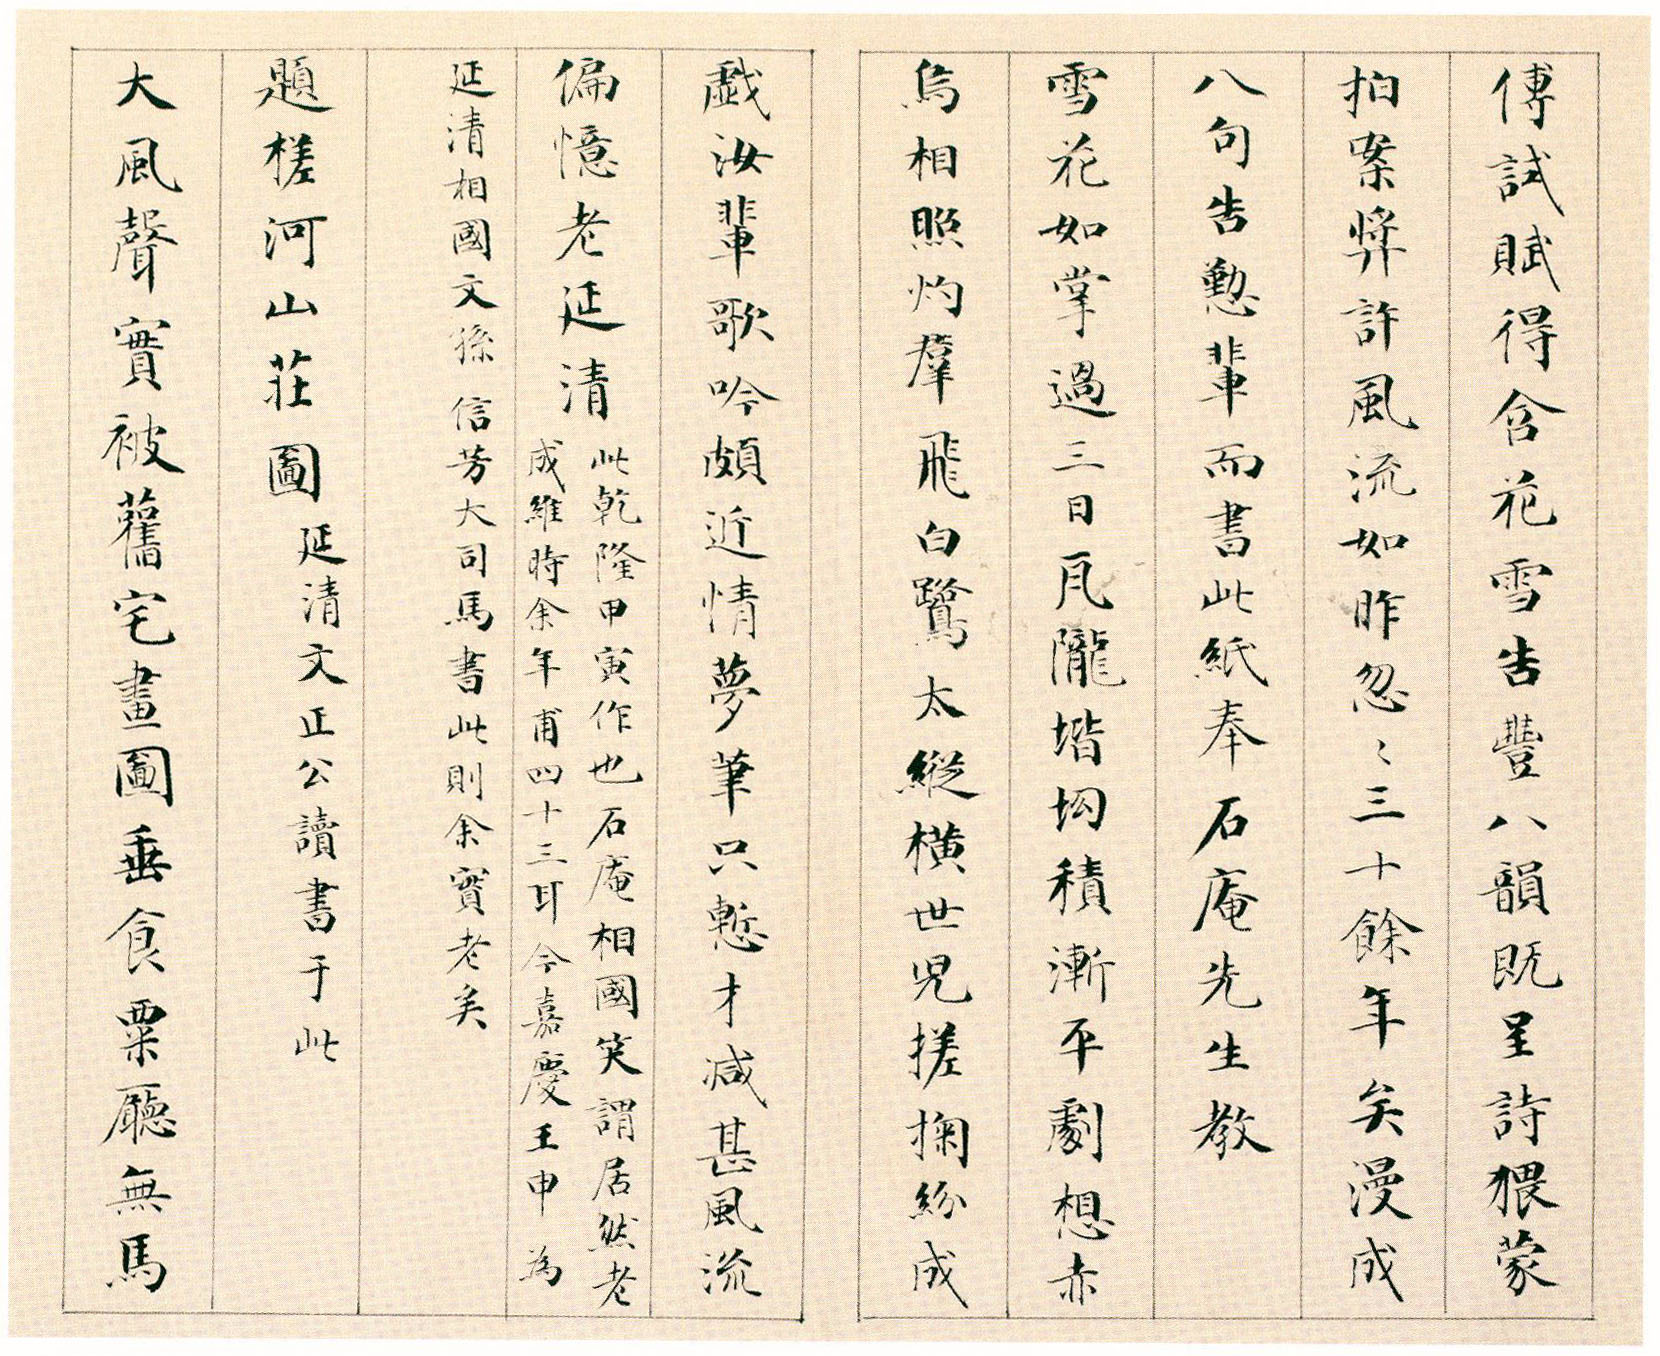 傅試賦得含花雪告豐八韻既呈詩猥蒙
拍案奬許風流如昨忽〻三十餘年矣漫成
八句告懃輩而書此紙奉石庵先生教
雪花如掌過三日瓦隴堦坳積漸平劇想赤
烏相照灼羣飛白鷺太縱橫世兒搓掬紛成
戲汝輩歌吟頗近情夢筆只慙才減甚風流
偏憶老延清
此乾隆甲寅作也石庵相國笑謂居然老
成維時余年甫四十三耳今嘉慶壬申為
延清相國文孫信芳大司馬書此則余實老矣
題槎河山莊圖
延清文正公讀書于此
大風聲實被舊宅畫圖垂食粟廳無馬